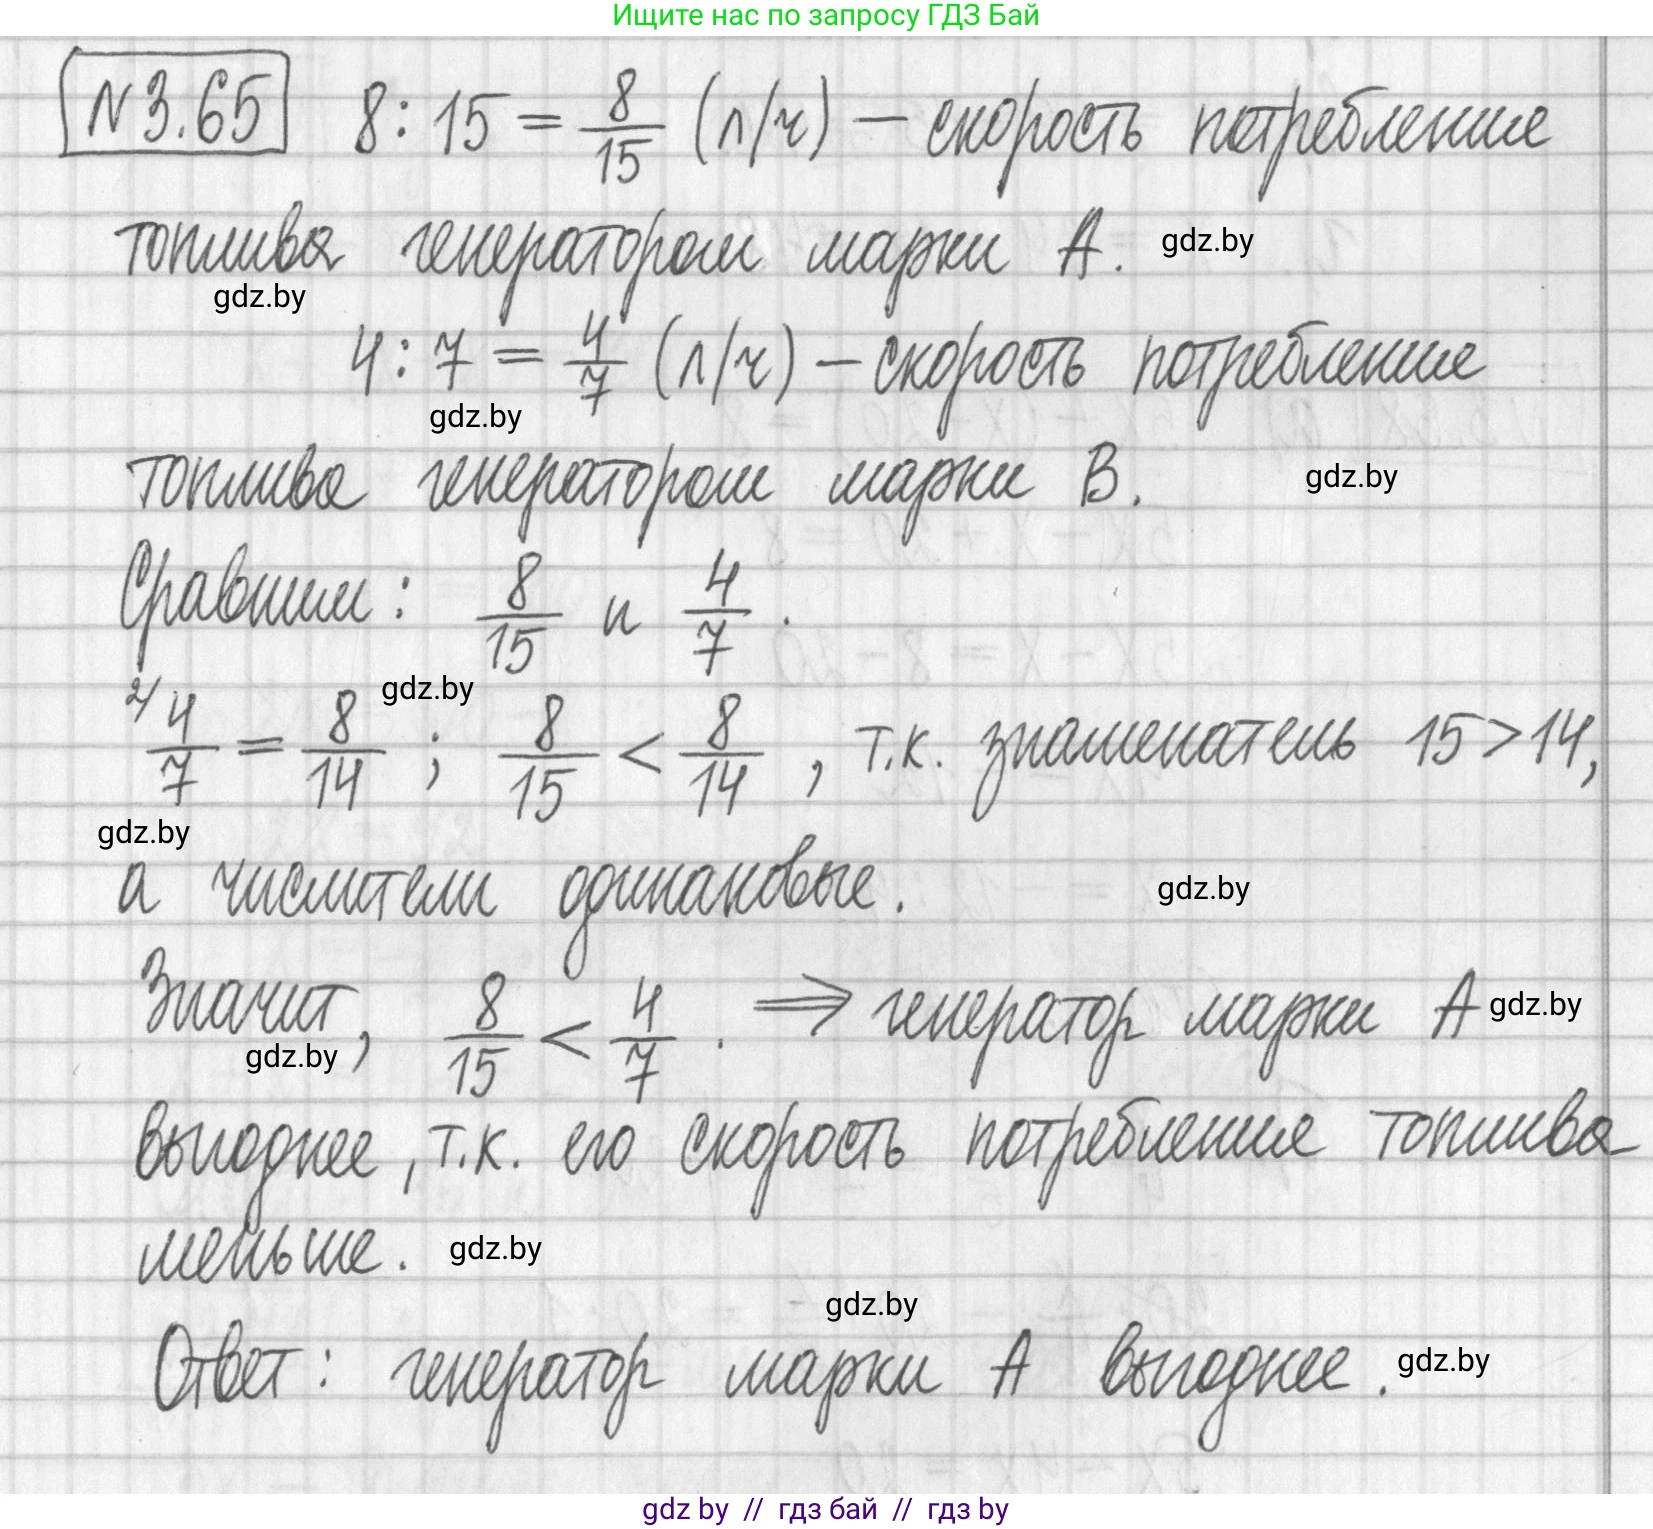 Ищите нас по запросу ГДЗ Бай
N 3.65 8 : 15 = 8/15 (л/ч) – скорость потребление
топлива генератором марки А. gdz.by
gdz.by
4 : 7 = 4/7 (л/ч) – скорость потребление
gdz.by
топлива генератором марки В. gdz.by
Сравним: 8/15 и 4/7.
gdz.by
2/ 4/7 = 8/14 ; 8/15 < 8/14 , т.к. знаменатель 15 > 14,
gdz.by
а числители одинаковые. gdz.by
Значит, 8/15 < 4/7 . ⇒ генератор марки А gdz.by
gdz.by
выгоднее, т.к. его скорость потребления топлива
меньше. gdz.by
gdz.by
Ответ: генератор марки А выгоднее. gdz.by
gdz by // гдз бай // гдз by